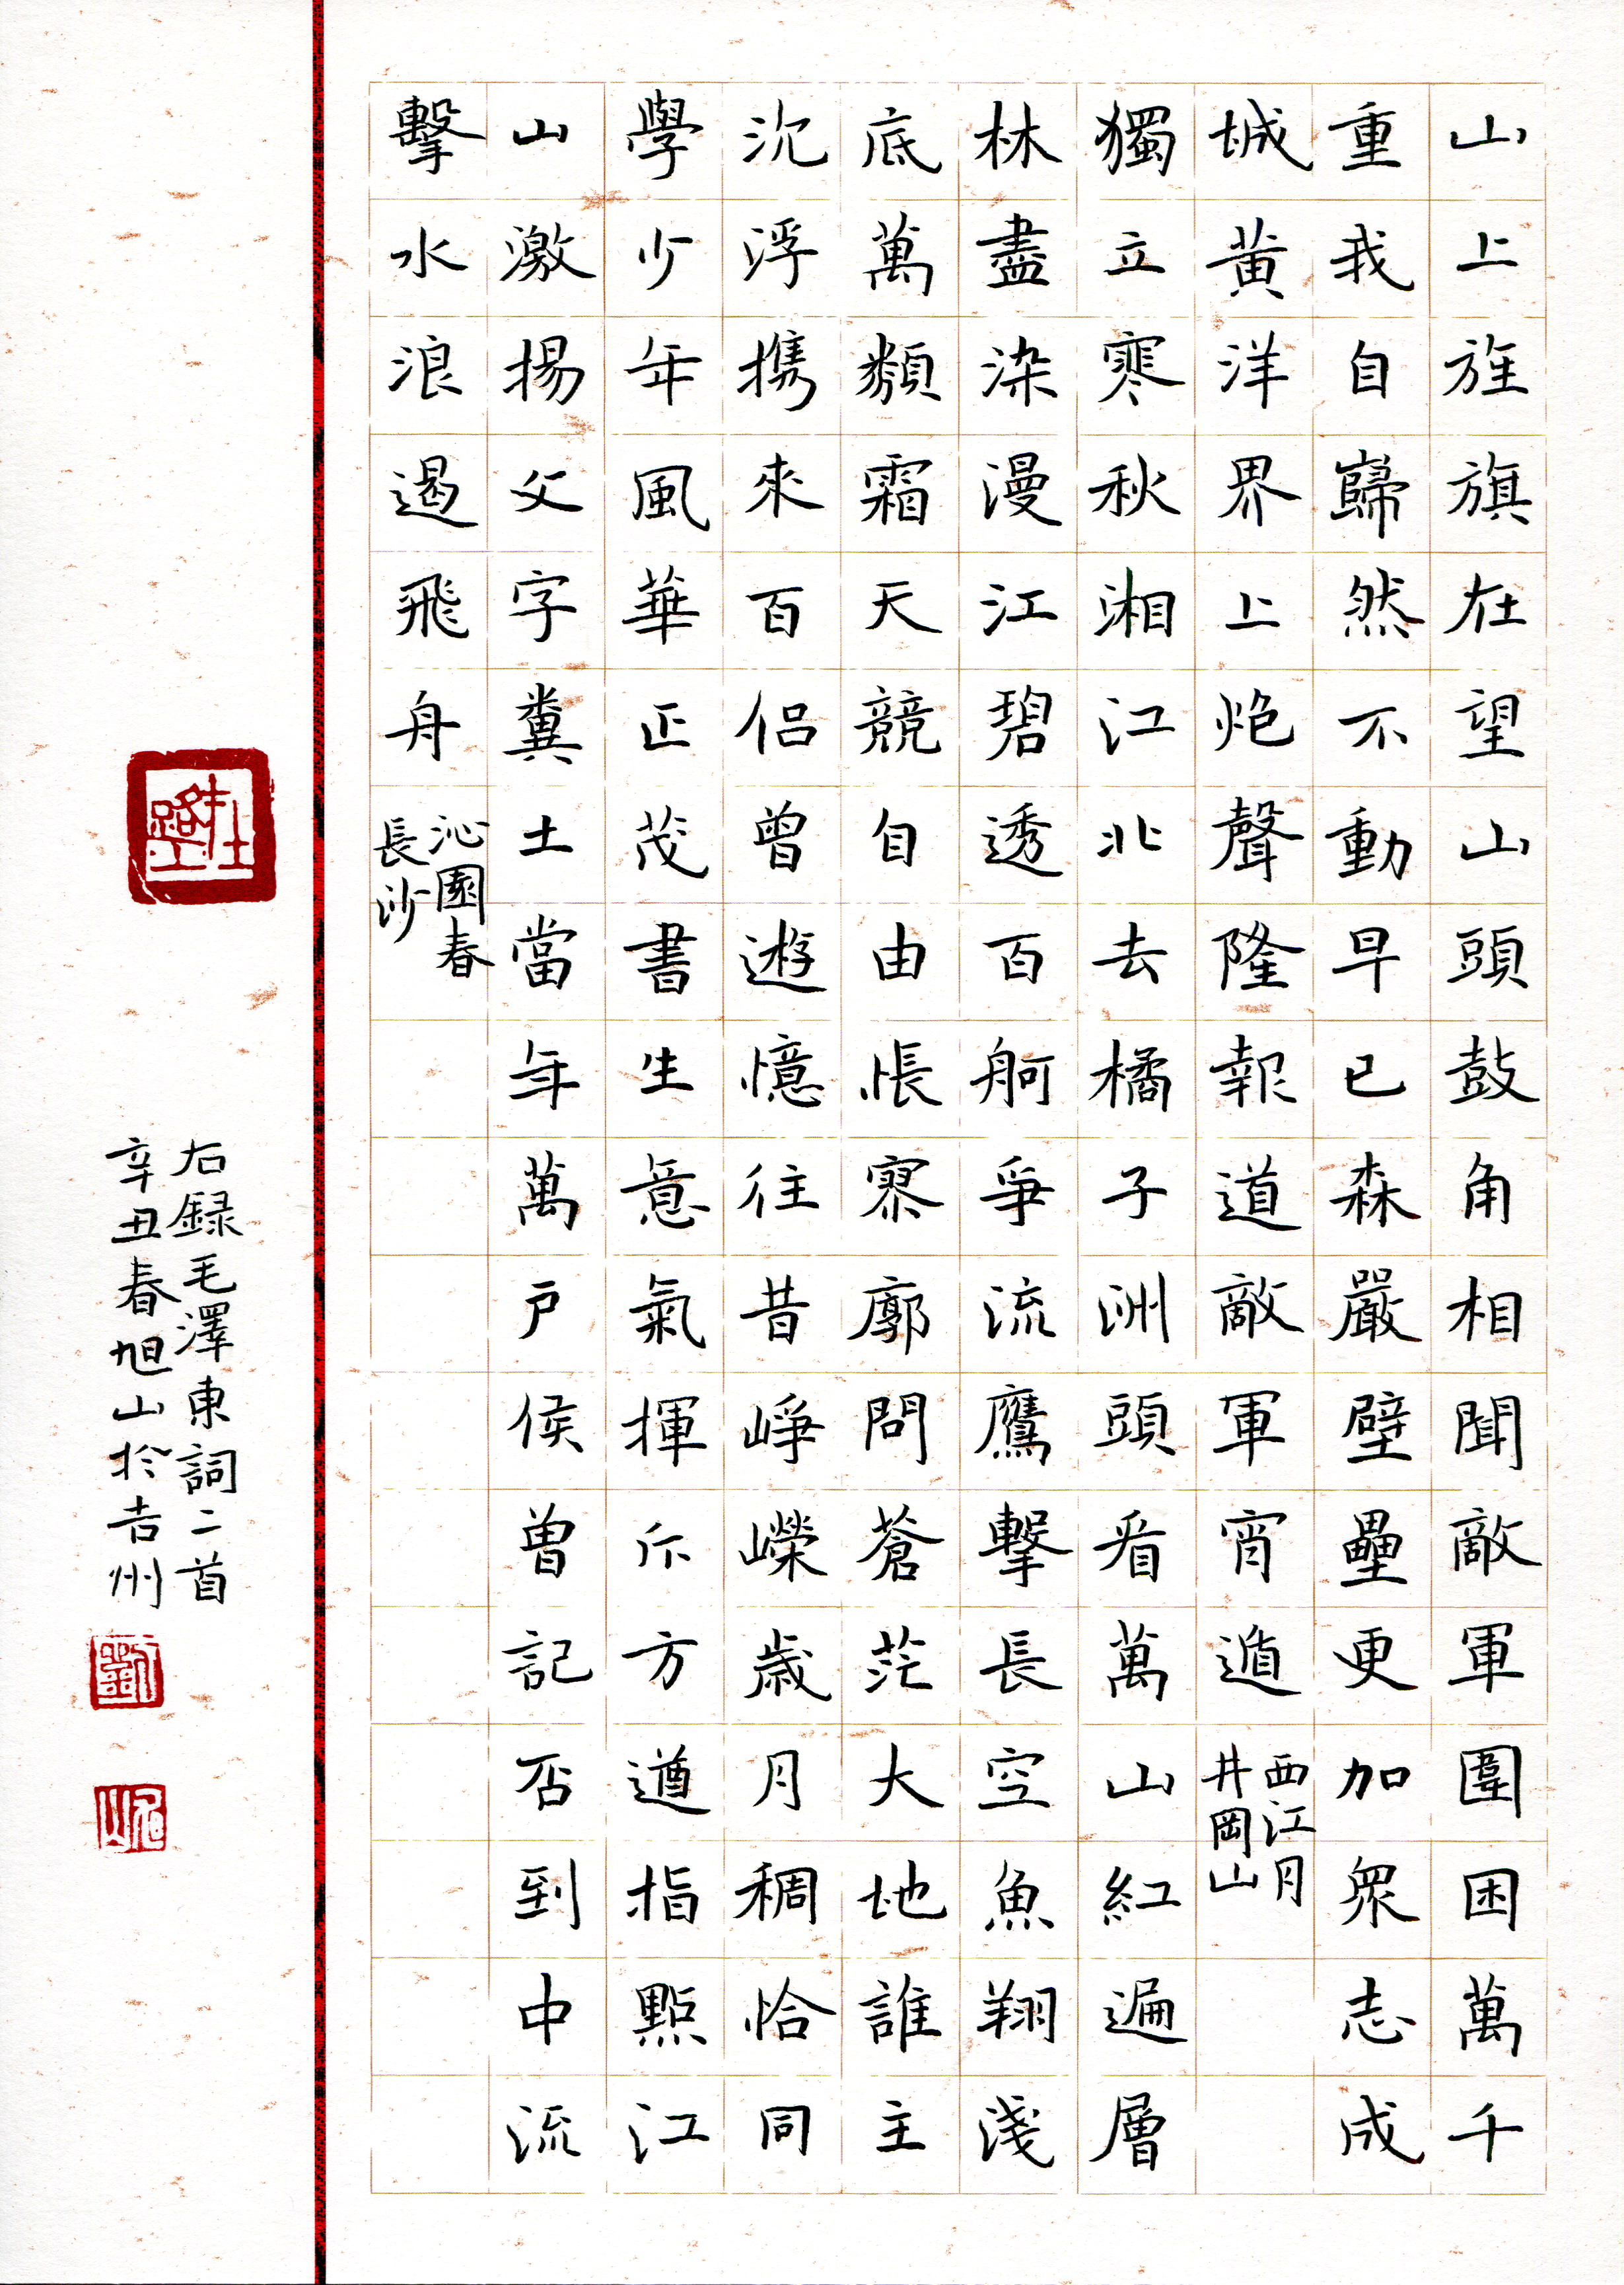 山上旌旗在望山頭鼓角相聞敵軍圍困萬千
重我自巋然不動早已森嚴壁壘更加衆志成
城黃洋界上炮聲隆報道敵軍宵遁
西江月
井岡山
獨立寒秋湘江北去橘子洲頭看萬山紅遍層
林盡染漫江碧透百舸爭流鷹擊長空魚翔淺
底萬類霜天競自由悵寥廓問蒼茫大地誰主
沉浮攜來百侶曾遊憶往昔崢嶸歲月稠恰同
學少年風華正茂書生意氣揮斥方遒指點江
山激揚文字糞土當年萬戶侯曾記否到中流
擊水浪遏飛舟
沁園春
長沙
右録毛澤東詞二首
辛丑春旭山於吉州
劉
旭山